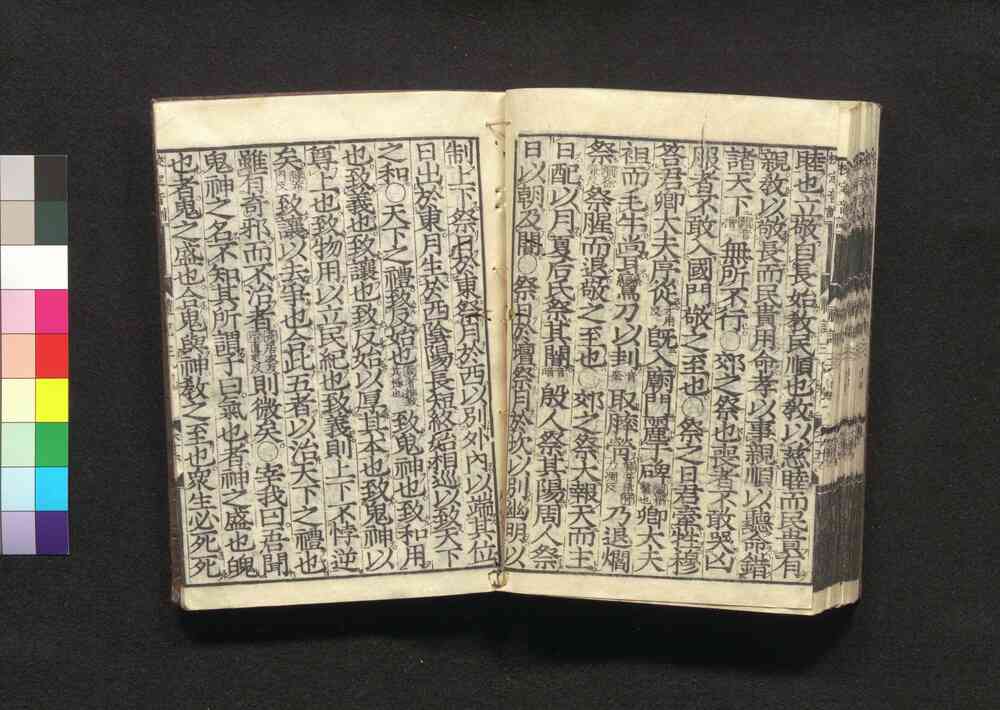 睦也立敬自長始教民順也教以慈睦而民貴有
親教以敬長而民貴用命孝以事親順以聽命錯
諸天下無所不行○郊之祭也喪者不敢哭凶
服者不敢入國門敬之至也○祭之日君牽牲穆
荅君卿大夫序從既入廟門麗于碑卿大夫
祖而毛牛尚耳鸞刀以刲取膟膋乃退爓
祭祭腥而退敬之至也○郊之祭大報天而主
日配以月夏后氏祭其闇殷人祭其陽周人祭
日以朝及闇○祭日於壇祭月於坎以別幽明以
制上下祭日於東祭月於西以別外內以端其位
日出於東月生於西陰陽長短終始相巡以致天下
之和○天下之禮致反始也致鬼神也致和用
也致義也致讓也致反始以厚其本也致鬼神以
尊上也致物用以立民紀也致義則上下不悖逆
矣致讓以去爭也合此五者以治天下之禮也
雖有奇邪而不治者則微矣○宰我曰吾聞
鬼神之名不知其所謂子曰氣也者神之盛也魄
也者鬼之盛也合鬼與神教之至也衆生必死死